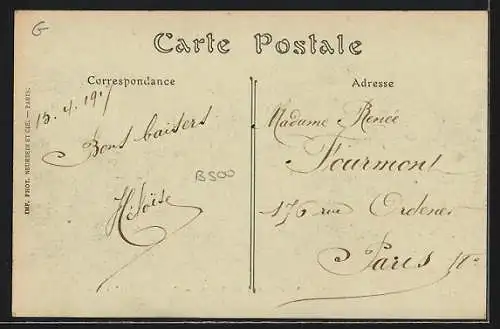 G
Carte Postale
Correspondance
Adresse
IMP. PHOT. NEURDEIN ET CIE. — PARIS.
15.4.1917
Bons baisers
Héloïse
B500
Madame Renée
Fourmont
176 rue Ordener
Paris